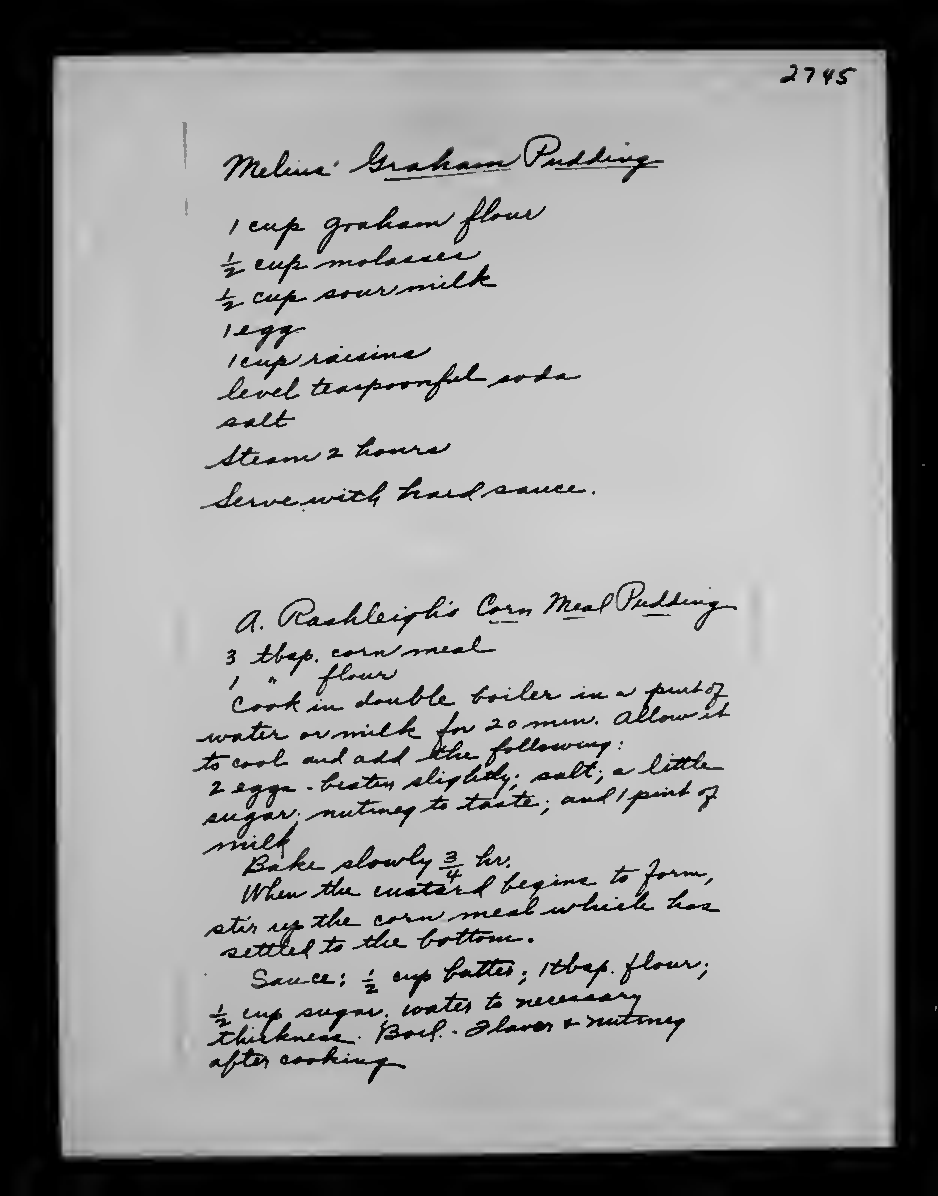 2745
Melius' Graham Pudding
1 cup graham flour
½ cup molasses
½ cup sour milk
1 egg
1 cup raisins
level teaspoonful soda
salt
Steam 2 hours
Serve with hard sauce.
A. Rashleigh's Corn Meal Pudding
3 tbsp. corn meal
1 " flour
Cook in double boiler in a pint of
water or milk for 20 min. Allow it
to cool and add the following:
2 eggs - beaten slightly; salt; a little
sugar; nutmeg to taste; and 1 pint of
milk
Bake slowly ¾ hr.
When the custard begins to form,
stir up the corn meal which has
settled to the bottom.
Sauce: ½ cup butter; 1 tbsp. flour;
½ cup sugar; water to necessary
thickness. Boil. - Flavor & nutmeg
after cooking